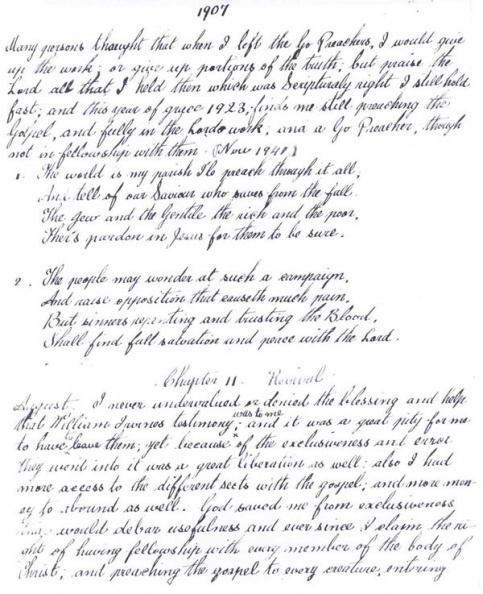 1907
Many persons thought that when I left the Go Preachers, I would give
up the work; or give up portions of the truth; but praise the
Lord all that I held then which was Scripturaly right I still hold
fast; and this year of grace 1923, finds me still preaching the
Gospel, and fully in the Lords work; and a Go Preacher, though
not in fellowship with them. (Nov 1940.)
1. The world is my parish I'lo preach through it all,
And tell of our Saviour who saves from the fall.
The Jew and the Gentile the rich and the poor,
Ther's pardon in Jesus for them to be sure.
2. The people may wonder at such a campaign,
And raise opposition that causeth much pain,
But sinners repenting and trusting the Blood,
Shall find full salvation and peace with the Lord.
Chapter 11 Revival
August. I never undervalued or denied the blessing and help
that William Irvines testimony was to me; and it was a great pity for me
to have to leave them; yet because of the exclusiveness and error
they went into it was a great liberation as well: also I had
more access to the different sects with the gospel; and more mon-
ey to abound as well. God saved me from exclusiveness
would debar usefulness and ever since I claim the ri-
ght of having fellowship with every member of the body of
Christ; and preaching the gospel to every creature, entering